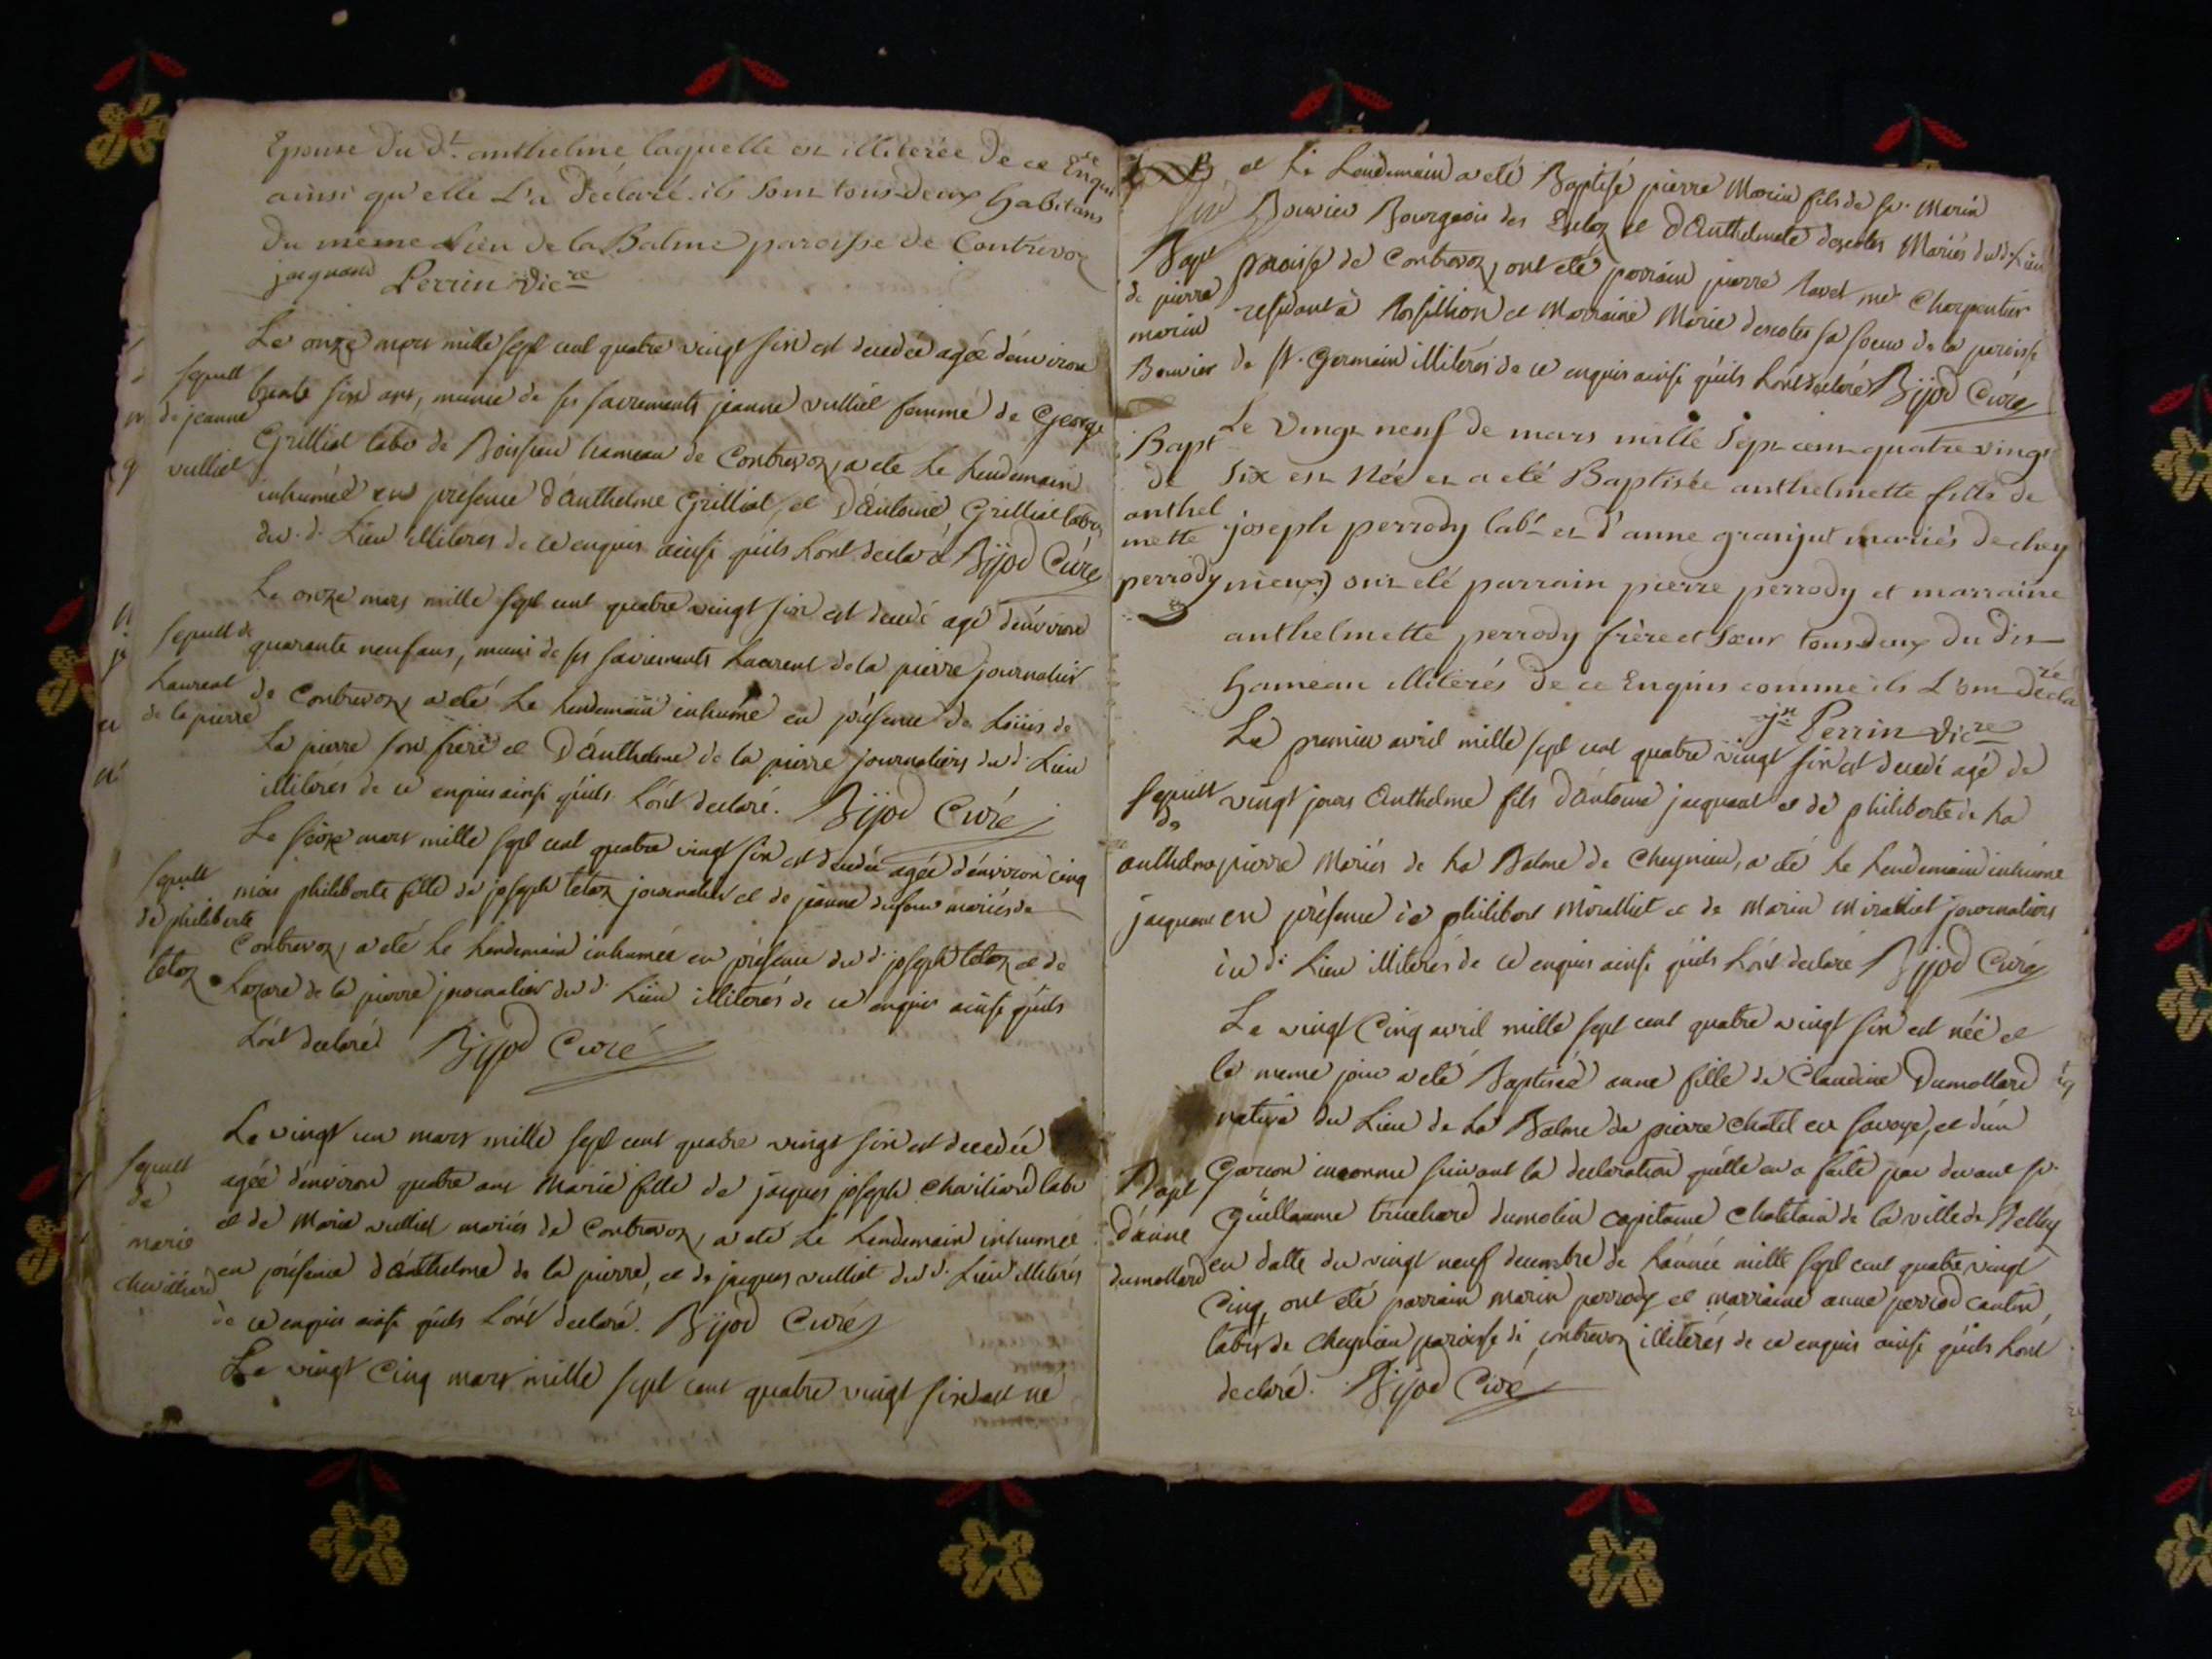 Epouse du dt. anthelme laquelle est illiterée de ce Enquise
ainsi qu'elle L'a déclaré. ils sont tous deux habitans
du même Lieu de la Balme paroisse de Contrevoz
jacquand Perrin vicre
Le onze mars mille sept cent quatre vingt six est decedée agée d'environ
trente six ans, munie de ses sacrements jeanne vulliet femme de George
Grilliet labr de Boissieu hameau de Contrevoz, a eté Le Lendemain
inhumée en présence d'Anthelme Grilliet, et d'Antoine Grilliet labrs
du d. Lieu illiterés de ce enquis ainsi qu'ils L'ont declaré Bijod Curé
sepult
de jeanne
vulliet
Le onze mars mille sept cent quatre vingt six est decedé agé d'environ
quarante neuf ans, muni de ses sacrements Laurent de la pierre journalier
de Contrevoz, a eté Le Lendemain inhumé en présence de Loüis de
La pierre son frère et D'Anthelme de la pierre journaliers du d. Lieu
illiterés de ce enquis ainsi qu'ils L'ont declaré. Bijod Curé
sepult de
Laurent
de la pierre
Le seize mars mille sept cent quatre vingt six est decedée agée d'environ cinq
mois philiberte fille de joseph tetaz journalier et de jeanne dufour mariés de
Contrevoz, a eté Le Lendemain inhumée en présence du d. joseph tetaz et de
Lazare de la pierre journalier du d. Lieu illiterés de ce enquis ainsi qu'ils
L'ont declaré Bijod Curé
sepult
de philiberte
tetaz
Le vingt un mars mille sept cent quatre vingt six est decedée
agée d'environ quatre ans Marie fille de jacques joseph Chevilliard labr
et de Marie vulliet mariés de Contrevoz, a eté Le Lendemain inhumée
en présence d'Anthelme de la pierre, et de jacques vulliet du d. Lieu illiterés
de ce enquis ainsi qu'ils L'ont declaré. Bijod Curé
sepult
de
marie
chevilliard
Le vingt Cinq mars mille sept cent quatre vingt six est né
et Le Lendemain a eté Baptisé pierre Marin fils de sr. Marin
Bouvier Bourgeois des et d'Anthelmete descotes Mariés du d. Lieu
paroisse de Contrevoz, ont eté parrain pierre Ravet me. Charpentier
residant à Rossillion et Marraine Marie descotes sa soeur de la paroisse
de St. Germain illiterés de ce enquis ainsi qu'ils L'ont declaré Bijod Curé
Bapt
de pierre
marin
Bouvier
Le Vingt neuf de mars mille Sept cent quatre vingt
Six est Née et a eté Baptisée anthelmette fille de
joseph perrody labr et d'anne granjut mariés de chey
nieux) ont eté parrain pierre perrody et marraine
anthelmette perrody frère et sœur tous deux du dit
hameau illiterés de ce Enquis comme ils L'ont déclaré
jn Perrin vicre
Bapt
de
anthel
mette
perrody
Le premier avril mille sept cent quatre vingt six est decedé agé de
vingt jours Anthelme fils d'Antoine jacquant et de philiberte de La
pierre Mariés de La Balme de Cheynieu, a eté Le Lendemain inhumé
en présence de philibert Miralliet et de Marin Miralliet journaliers
du d. Lieu illiterés de ce enquis ainsi qu'ils L'ont declaré Bijod Curé
sepult
de
anthelme
jacquant
Le vingt Cinq avril mille sept cent quatre vingt six est née et
le meme jour a eté Baptisée anne fille de Claudine Dumollard
native du Lieu de La Balme de pierre Chatel en Savoye, et d'un
Garcon inconnu suivant la declaration qu'elle en a faite par devant sr.
Guillaume truchard dumolin capitaine Chatelain de la ville de Belley
en datte du vingt neuf decembre de L'année mille sept cent quatre vingt
Cinq, ont eté parrain marin perrody et marraine anne perrod cantin,
labrs de Cheynieu paroisse de contrevoz illiterés de ce enquis ainsi qu'ils L'ont
declaré. Bijod Curé
Bapt
d'anne
dumollard